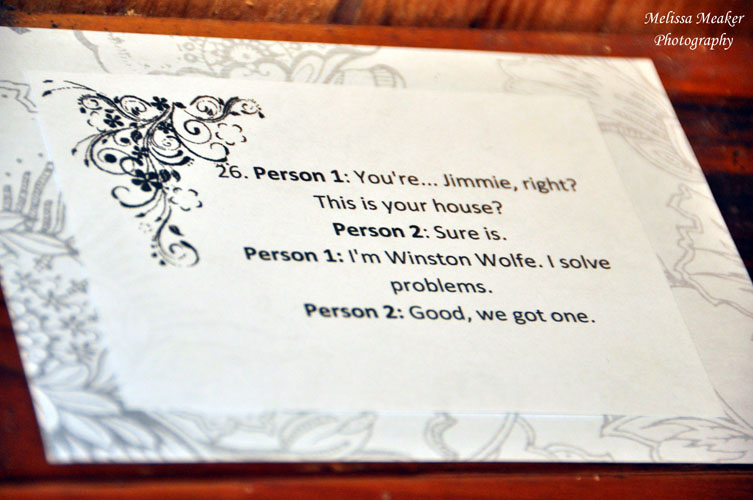 Melissa Meaker
Photography
26. Person 1: You're... Jimmie, right?
This is your house?
Person 2: Sure is.
Person 1: I'm Winston Wolfe. I solve
problems.
Person 2: Good, we got one.